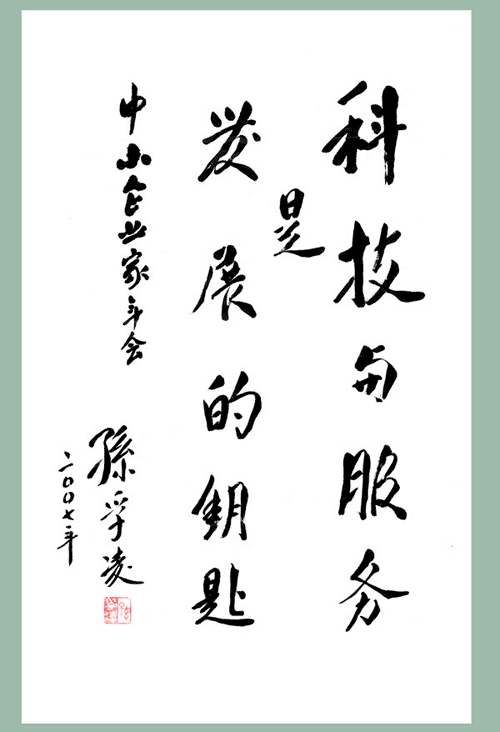 科技与服务
是
发展的钥匙
中小企业家年会
孫孚凌
二〇〇七年